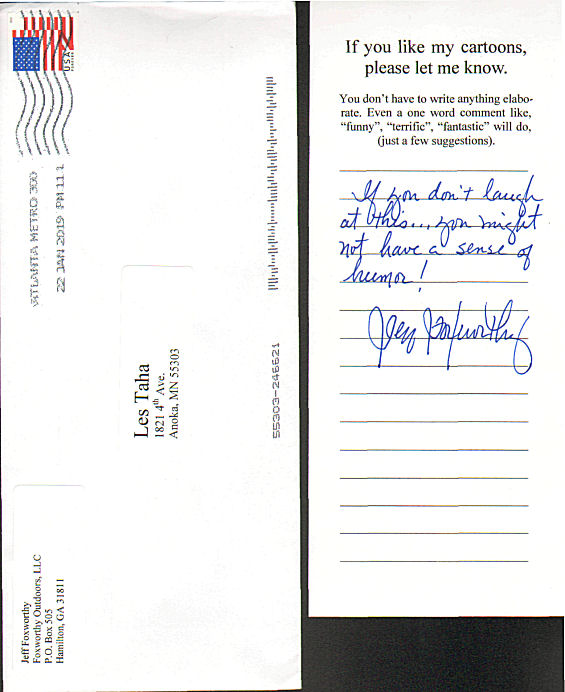 USA
FOREVER
ATLANTA METRO 300
22 JAN 2019 PM 11 L
Les Taha
1821 4th Ave.
Anoka, MN 55303
55303-246621
Jeff Foxworthy
Foxworthy Outdoors, LLC
P.O. Box 505
Hamilton, GA 31811
If you like my cartoons,
please let me know.
You don't have to write anything elabo-
rate. Even a one word comment like,
“funny”, “terrific”, “fantastic” will do,
(just a few suggestions).
If you don't laugh
at this... you might
not have a sense of
humor!
Jeff Foxworthy